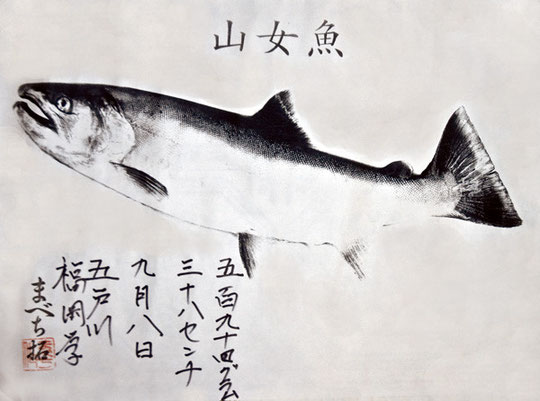 山女魚
五百九十四グラム
三十八センチ
九月八日
五戸川
福岡学
まべち拓